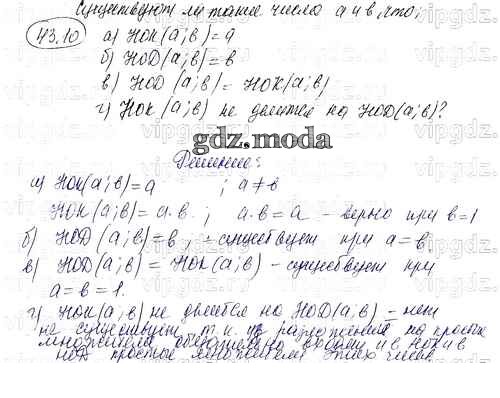 Существуют ли такие числа а и в, что:
43.10
а) НОК(а;в)=а
б) НОД(а;в)=в
в) НОД (а;в)= НОК(а;в)
г) НОК (а;в) не делится на НОД(а;в)?
gdz.moda
Решение:
а) НОК(а;в)=а ; а≠в
НОК(а;в)=а·в ; а·в=а - верно при в=1
б) НОД(а;в)=в, - существует при а=в
в) НОД(а;в) = НОК(а;в) - существует при
а=в=1.
г) НОК(а;в) не делится на НОД(а;в) - нет
не существует, т.к. из разложения на простые
множители обязательно входят и в НОК и в
НОД простые множители этих чисел.